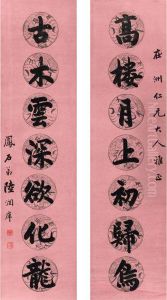 洲仁兄大人雅正
高樓月上初歸鳥
古木雲深欲化龍
鳳石弟陸潤庠